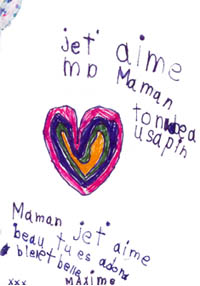 jet' aime
mp Maman
ton bea
usapin
Maman jet' aime
beau tu es adora
blelet belle
xxx Maxime